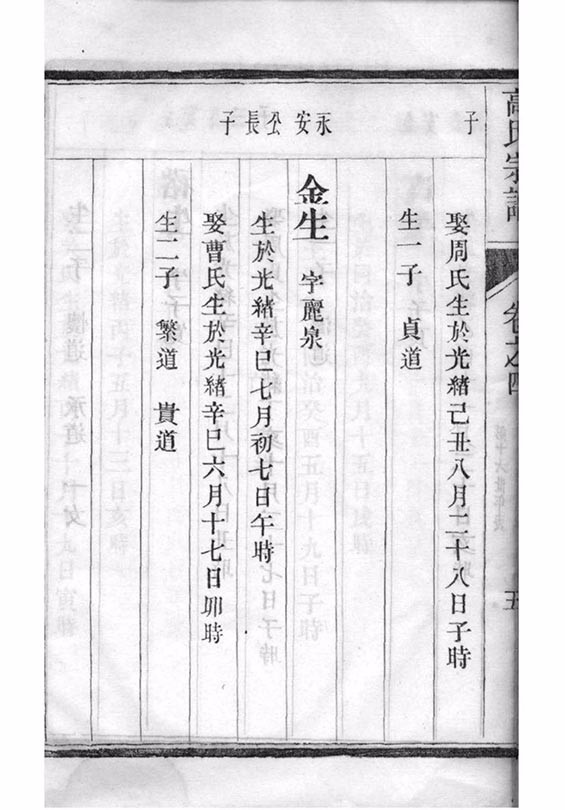 高氏宗譜
卷之四
五
子
娶周氏生於光緒己丑八月二十八日子時
生一子 貞道
永安公長子
金生 字麗泉
生於光緒辛巳七月初七日午時
娶曹氏生於光緒辛巳六月十七日卯時
生二子 繁道 貴道